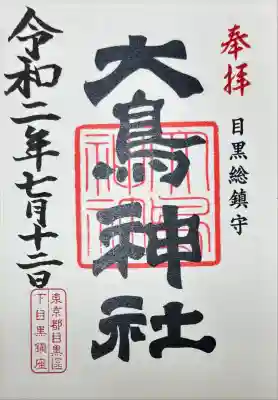 奉拝
目黒総鎮守
大鳥神社
令和二年七月十二日
東京都目黒区
下目黒鎮座